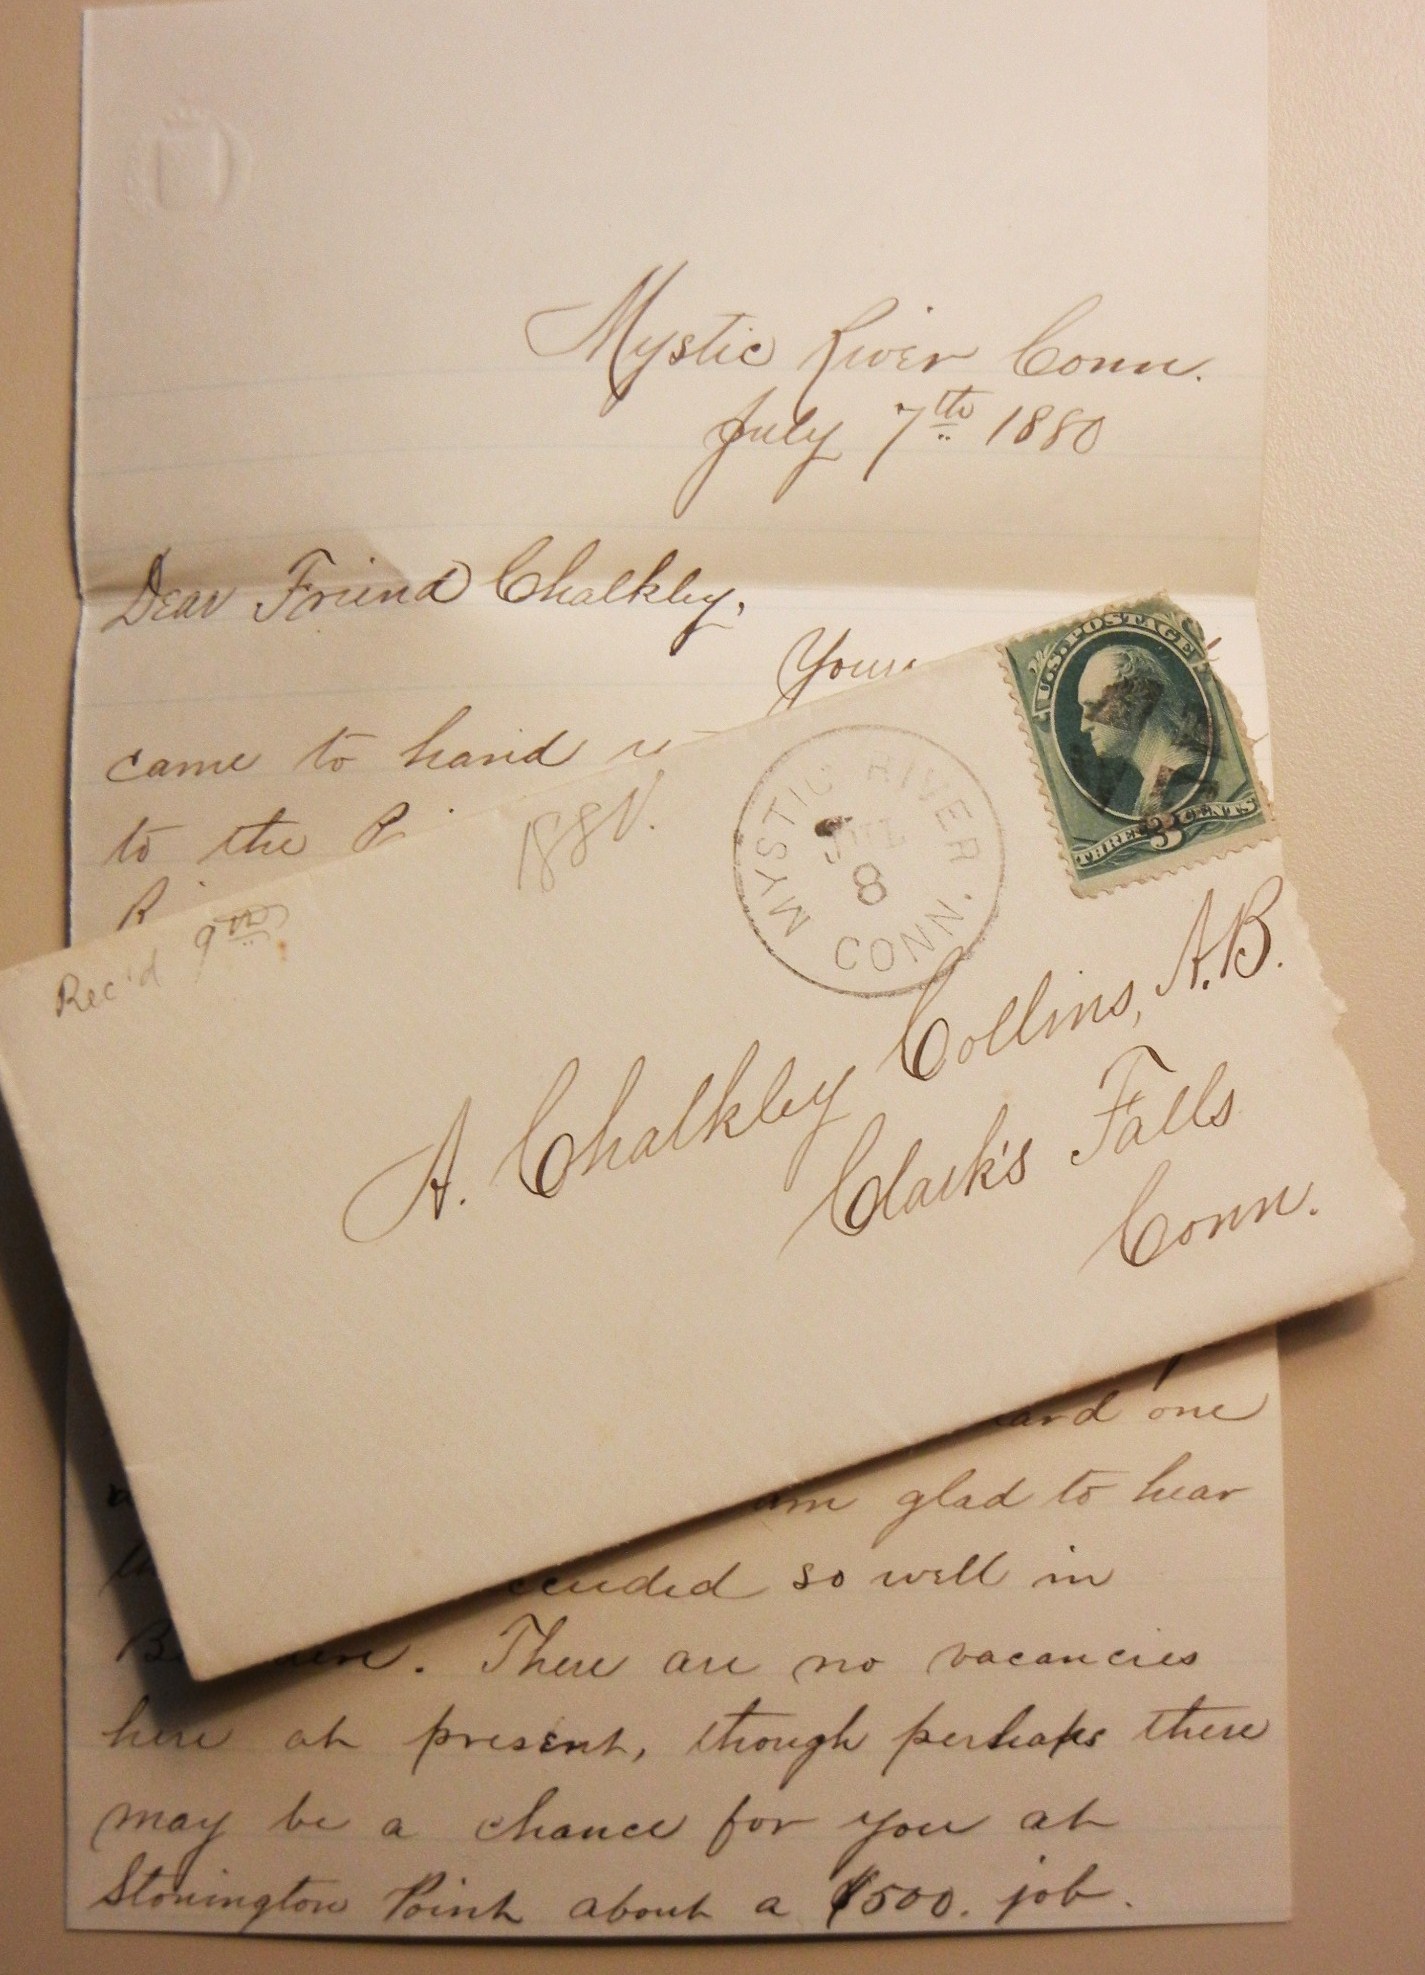 Mystic River Conn.
July 7th 1880
Dear Friend Chalkley,
came to hand
to the
Rec'd 9th
1880.
MYSTIC RIVER CONN.
JUL
8
U.S. POSTAGE
THREE 3 CENTS
A. Chalkley Collins, A.B.
Clark's Falls
Conn.
one
am glad to hear
so well in
There are no vacancies
here at present, though perhaps there
may be a chance for you at
Stonington Point about a $500. job.